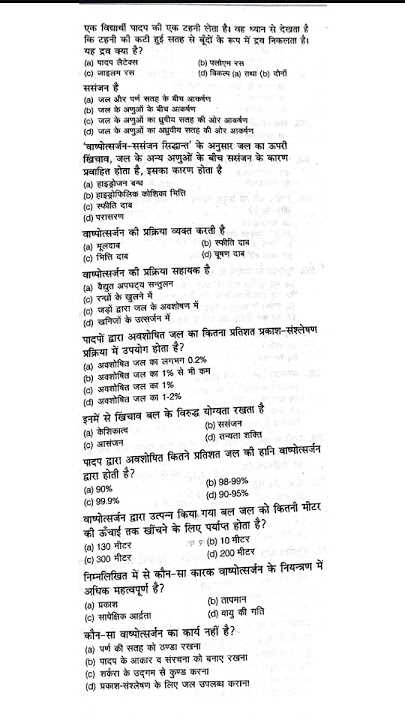 एक विद्यार्थी पादप की एक टहनी लेता है। वह ध्यान से देखता है
कि टहनी की कटी हुई सतह से बूँदों के रूप में द्रव निकलता है।
यह द्रव क्या है?
(a) पादप लैटेक्स (b) फ्लोएम रस
(c) जाइलम रस (d) विकल्प (a) तथा (b) दोनों
ससंजन है
(a) जल और पर्ण सतह के बीच आकर्षण
(b) जल के अणुओं के बीच आकर्षण
(c) जल के अणुओं का ध्रुवीय सतह की ओर आकर्षण
(d) जल के अणुओं का अध्रुवीय सतह की ओर आकर्षण
'वाष्पोत्सर्जन-ससंजन सिद्धान्त' के अनुसार जल का ऊपरी
खिंचाव, जल के अन्य अणुओं के बीच ससंजन के कारण
प्रवाहित होता है, इसका कारण होता है
(a) हाइड्रोजन बन्ध
(b) हाइड्रोफिलिक कोशिका भित्ति
(c) स्फीति दाब
(d) परासरण
वाष्पोत्सर्जन की प्रक्रिया व्यक्त करती है
(a) मूलदाब (b) स्फीति दाब
(c) भित्ति दाब (d) चूषण दाब
वाष्पोत्सर्जन की प्रक्रिया सहायक है
(a) वैद्युत अपघट्य सन्तुलन
(c) रन्ध्रों के खुलने में
(c) जड़ों द्वारा जल के अवशोषण में
(d) खनिजों के उत्सर्जन में
पादपों द्वारा अवशोषित जल का कितना प्रतिशत प्रकाश-संश्लेषण
प्रक्रिया में उपयोग होता है?
(a) अवशोषित जल का लगभग 0.2%
(b) अवशोषित जल का 1% से भी कम
(c) अवशोषित जल का 1%
(d) अवशोषित जल का 1-2%
इनमें से खिंचाव बल के विरुद्ध योग्यता रखता है
(a) केशिकात्व (b) ससंजन
(c) आसंजन (d) तन्यता शक्ति
पादप द्वारा अवशोषित कितने प्रतिशत जल की हानि वाष्पोत्सर्जन
द्वारा होती है?
(a) 90% (b) 98-99%
(c) 99.9% (d) 90-95%
वाष्पोत्सर्जन द्वारा उत्पन्न किया गया बल जल को कितनी मीटर
की ऊँचाई तक खींचने के लिए पर्याप्त होता है?
(a) 130 मीटर (b) 10 मीटर
(c) 300 मीटर (d) 200 मीटर
निम्नलिखित में से कौन-सा कारक वाष्पोत्सर्जन के नियन्त्रण में
अधिक महत्वपूर्ण है?
(a) प्रकाश (b) तापमान
(c) सापेक्षिक आर्द्रता (d) वायु की गति
कौन-सा वाष्पोत्सर्जन का कार्य नहीं है?
(a) पर्ण की सतह को ठण्डा रखना
(b) पादप के आकार व संरचना को बनाए रखना
(c) शर्करा के उद्गम से कुण्ड करना
(d) प्रकाश-संश्लेषण के लिए जल उपलब्ध कराना